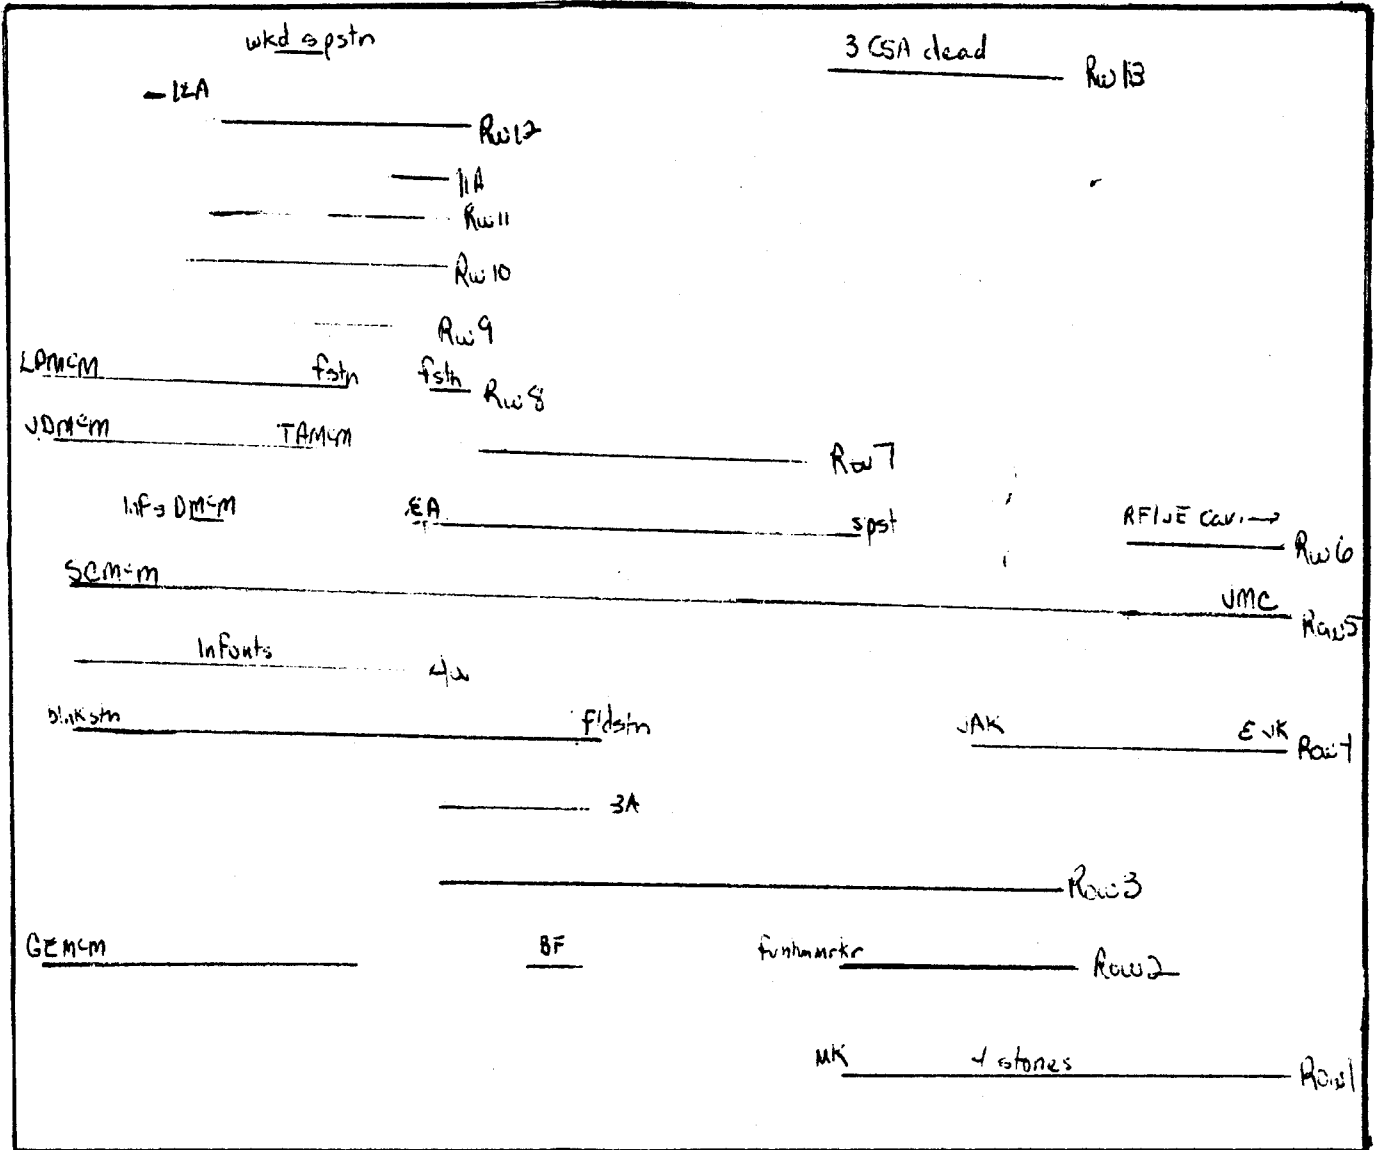 wkd spstn
3 CSA dead
Rw 13
12A
Rw 12
11A
Rw 11
Rw 10
Rw 9
LDMcM fstn fstn Rw 8
JDMcM TAMcM Row 7
Infs DMcM EA spst
Rw 6
SCMcM JMC Row 5
Infants
blnkstn fldstn JAK EJK Row 4
3A
Row 3
GEMcM BF funhmmrkr Row 2
MK 4 stones Row 1